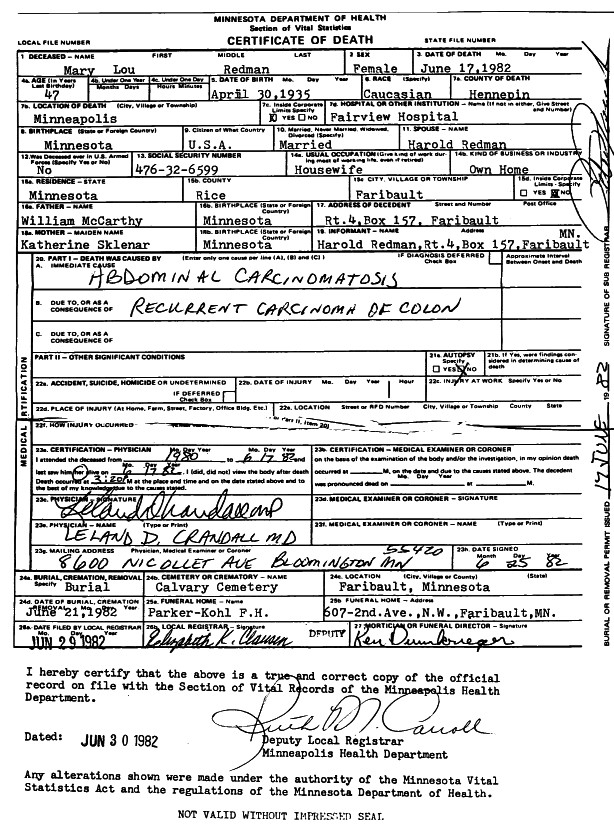 MINNESOTA DEPARTMENT OF HEALTH
Section of Vital Statistics
LOCAL FILE NUMBER CERTIFICATE OF DEATH STATE FILE NUMBER
1 DECEASED – NAME FIRST MIDDLE LAST 2 SEX 3. DATE OF DEATH Mo. Day Year
Mary Lou Redman Female June 17,1982
4a. AGE (In Years Last Birthday) 4b. Under One Year Months Days 4c. Under One Day Hours Minutes 5. DATE OF BIRTH Mo. Day Year 6. RACE (Specify) 7a. COUNTY OF DEATH
47 April 30,1935 Caucasian Hennepin
7b. LOCATION OF DEATH (City, Village or Township) 7c. Inside Corporate Limits - Specify 7d. HOSPITAL OR OTHER INSTITUTION – Name (If not in either, Give Street and Number)
Minneapolis YES NO Fairview Hospital
8. BIRTHPLACE (State or Foreign Country) 9. Citizen of What Country 10. Married, Never Married, Widowed, Divorced (Specify) 11. SPOUSE – NAME
Minnesota U.S.A. Married Harold Redman
12. Was Deceased ever in U.S. Armed Forces (Specify Yes or No) 13. SOCIAL SECURITY NUMBER 14a. USUAL OCCUPATION (Give kind of work during most of working life, even if retired) 14b. KIND OF BUSINESS OR INDUSTRY
No 476-32-6599 Housewife Own Home
15a. RESIDENCE - STATE 15b. COUNTY 15c CITY, VILLAGE OR TOWNSHIP 15d. Inside Corporate Limits - Specify
Minnesota Rice Faribault YES NO
16a. FATHER – NAME 16b. BIRTHPLACE (State or Foreign Country) 17. ADDRESS OF DECEDENT Street and Number Post Office
William McCarthy Minnesota Rt.4,Box 157, Faribault
18a. MOTHER – MAIDEN NAME 18b. BIRTHPLACE (State or Foreign Country) 19. INFORMANT – NAME Address MN.
Katherine Sklenar Minnesota Harold Redman,Rt.4,Box 157,Faribault
20. PART I – DEATH WAS CAUSED BY (Enter only one cause per line (A), (B) and (C)) IF DIAGNOSIS DEFERRED Check Box Approximate Interval Between Onset and Death
A. IMMEDIATE CAUSE ABDOMINAL CARCINOMATOSIS
B. DUE TO, OR AS A CONSEQUENCE OF RECURRENT CARCINOMA OF COLON
C. DUE TO, OR AS A CONSEQUENCE OF
PART II – OTHER SIGNIFICANT CONDITIONS 21a. AUTOPSY Specify YES NO 21b. If Yes, were findings considered in determining cause of death
22a. ACCIDENT, SUICIDE, HOMICIDE OR UNDETERMINED IF DEFERRED Check Box 22b. DATE OF INJURY Mo. Day Year Hour 22c. INJURY AT WORK Specify Yes or No
22d. PLACE OF INJURY (At Home, Farm, Street, Factory, Office Bldg. Etc.) 22e. LOCATION Street or RFD Number City, Village or Township County State
22f. HOW INJURY OCCURRED or Part II, Item 20)
MEDICAL CERTIFICATION
23a. CERTIFICATION – PHYSICIAN Mo. Day Year Mo. Day Year 23b. CERTIFICATION – MEDICAL EXAMINER OR CORONER
I attended the deceased from 1980 to 6 17 82 and on the basis of the examination of the body and/or the investigation, in my opinion death
last saw him/her alive on 6 17 82 I (did, did not) view the body after death occurred at M, on the date and due to the causes stated above. The decedent
Death occurred at 3:20 M at the place and time and on the date stated above and to the best of my knowledge due to the causes stated. was pronounced dead on at M.
23c. PHYSICIAN – SIGNATURE Leland D Crandall MD 23d. MEDICAL EXAMINER OR CORONER – SIGNATURE
23e. PHYSICIAN – NAME (Type or Print) 23f. MEDICAL EXAMINER OR CORONER – NAME (Type or Print)
LELAND D. CRANDALL MD
23g. MAILING ADDRESS Physician, Medical Examiner or Coroner 55420 23h. DATE SIGNED Month Day Year
8600 NICOLLET AVE BLOOMINGTON MN 6 25 82
24a. BURIAL, CREMATION, REMOVAL Specify 24b. CEMETERY OR CREMATORY – NAME 24c. LOCATION (City, Village or County) (State)
Burial Calvary Cemetery Faribault, Minnesota
24d. DATE OF BURIAL, CREMATION REMOVAL Mo. Day Year 25a. FUNERAL HOME – Name 25b. FUNERAL HOME – Address
June 21,1982 Parker-Kohl F.H. 607-2nd.Ave.,N.W.,Faribault,MN.
26a. DATE FILED BY LOCAL REGISTRAR Mo. Day Year 26b. LOCAL REGISTRAR – Signature 27 MORTICIAN OR FUNERAL DIRECTOR – Signature
JUN 29 1982 Elizabeth K. Clausen DEPUTY
BURIAL OR REMOVAL PERMIT ISSUED 17 June 1982 SIGNATURE OF SUB REGISTRAR
I hereby certify that the above is a true and correct copy of the official
record on file with the Section of Vital Records of the Minneapolis Health
Department.
Ruth M. Carroll
Dated: JUN 30 1982 Deputy Local Registrar
Minneapolis Health Department
Any alterations shown were made under the authority of the Minnesota Vital
Statistics Act and the regulations of the Minnesota Department of Health.
NOT VALID WITHOUT IMPRESSED SEAL